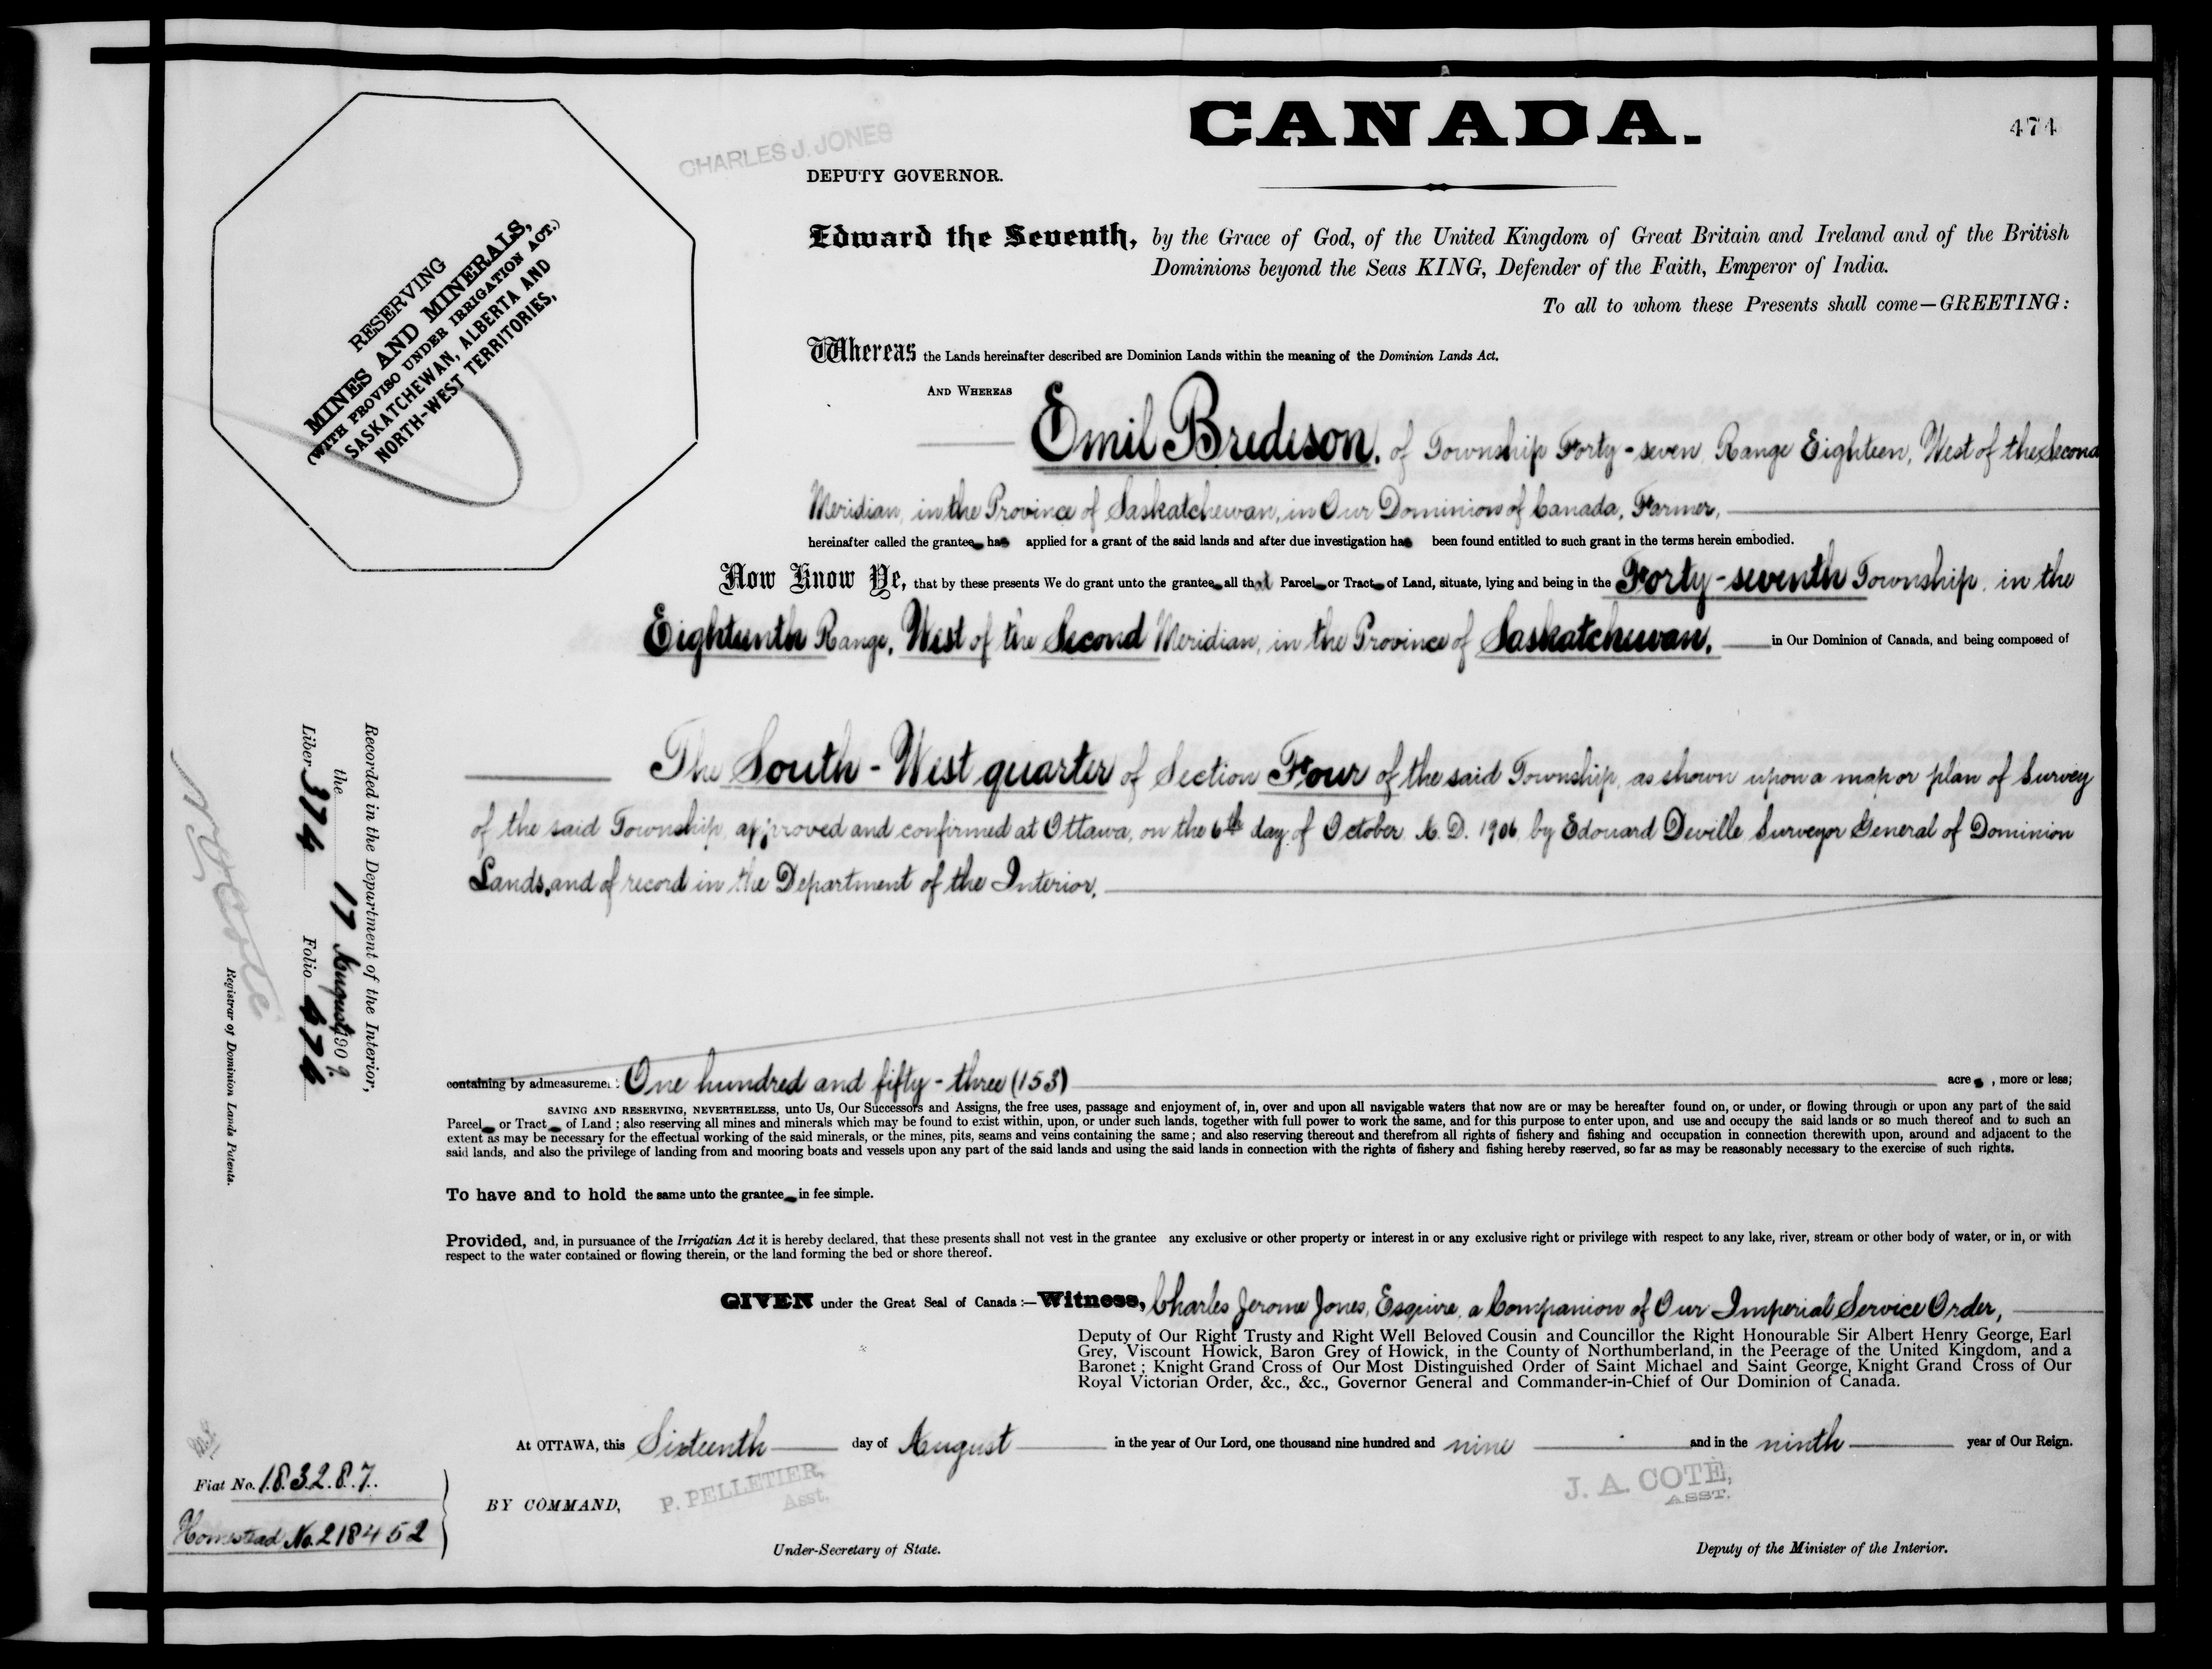 CANADA.
474
CHARLES J. JONES
DEPUTY GOVERNOR.
RESERVING
MINES AND MINERALS,
(WITH PROVISO UNDER IRRIGATION ACT.)
SASKATCHEWAN, ALBERTA AND
NORTH-WEST TERRITORIES,
Edward the Seventh, by the Grace of God, of the United Kingdom of Great Britain and Ireland and of the British
Dominions beyond the Seas KING, Defender of the Faith, Emperor of India.
To all to whom these Presents shall come—GREETING:
Whereas the Lands hereinafter described are Dominion Lands within the meaning of the Dominion Lands Act.
AND WHEREAS
Emil Bredeson, of Township Forty-seven, Range Eighteen, West of the Second
Meridian, in the Province of Saskatchewan, in Our Dominion of Canada, Farmer,
hereinafter called the grantee has applied for a grant of the said lands and after due investigation has been found entitled to such grant in the terms herein embodied.
Now Know Ye, that by these presents We do grant unto the grantee all that Parcel or Tract of Land, situate, lying and being in the Forty-seventh Township, in the
Eighteenth Range, West of the Second Meridian, in the Province of Saskatchewan, in Our Dominion of Canada, and being composed of
The South-West quarter of Section Four of the said Township, as shown upon a map or plan of Survey
of the said Township, approved and confirmed at Ottawa, on the 6th day of October A.D. 1906, by Edouard Deville, Surveyor General of Dominion
Lands, and of record in the Department of the Interior,
containing by admeasurement One hundred and fifty-three (153) acres, more or less;
SAVING AND RESERVING, NEVERTHELESS, unto Us, Our Successors and Assigns, the free uses, passage and enjoyment of, in, over and upon all navigable waters that now are or may be hereafter found on, or under, or flowing through or upon any part of the said
Parcel or Tract of Land; also reserving all mines and minerals which may be found to exist within, upon, or under such lands, together with full power to work the same, and for this purpose to enter upon, and use and occupy the said lands or so much thereof and to such an
extent as may be necessary for the effectual working of the said minerals, or the mines, pits, seams and veins containing the same; and also reserving thereout and therefrom all rights of fishery and fishing and occupation in connection therewith upon, around and adjacent to the
said lands, and also the privilege of landing from and mooring boats and vessels upon any part of the said lands and using the said lands in connection with the rights of fishery and fishing hereby reserved, so far as may be reasonably necessary to the exercise of such rights.
To have and to hold the same unto the grantee in fee simple.
Provided, and, in pursuance of the Irrigatian Act it is hereby declared, that these presents shall not vest in the grantee any exclusive or other property or interest in or any exclusive right or privilege with respect to any lake, river, stream or other body of water, or in, or with
respect to the water contained or flowing therein, or the land forming the bed or shore thereof.
GIVEN under the Great Seal of Canada:—Witness, Charles Jerome Jones, Esquire, a Companion of Our Imperial Service Order,
Deputy of Our Right Trusty and Right Well Beloved Cousin and Councillor the Right Honourable Sir Albert Henry George, Earl
Grey, Viscount Howick, Baron Grey of Howick, in the County of Northumberland, in the Peerage of the United Kingdom, and a
Baronet; Knight Grand Cross of Our Most Distinguished Order of Saint Michael and Saint George, Knight Grand Cross of Our
Royal Victorian Order, &c., &c., Governor General and Commander-in-Chief of Our Dominion of Canada.
At OTTAWA, this Sixteenth day of August in the year of Our Lord, one thousand nine hundred and nine and in the ninth year of Our Reign.
BY COMMAND,
P. PELLETIER,
Asst.
Under-Secretary of State.
J. A. COTE,
ASST.
Deputy of the Minister of the Interior.
Recorded in the Department of the Interior,
the 17 August 1909
Liber 374 Folio 474
N O Coté
Registrar of Dominion Lands Patents.
Fiat No. 183287.
Homestead No. 218452